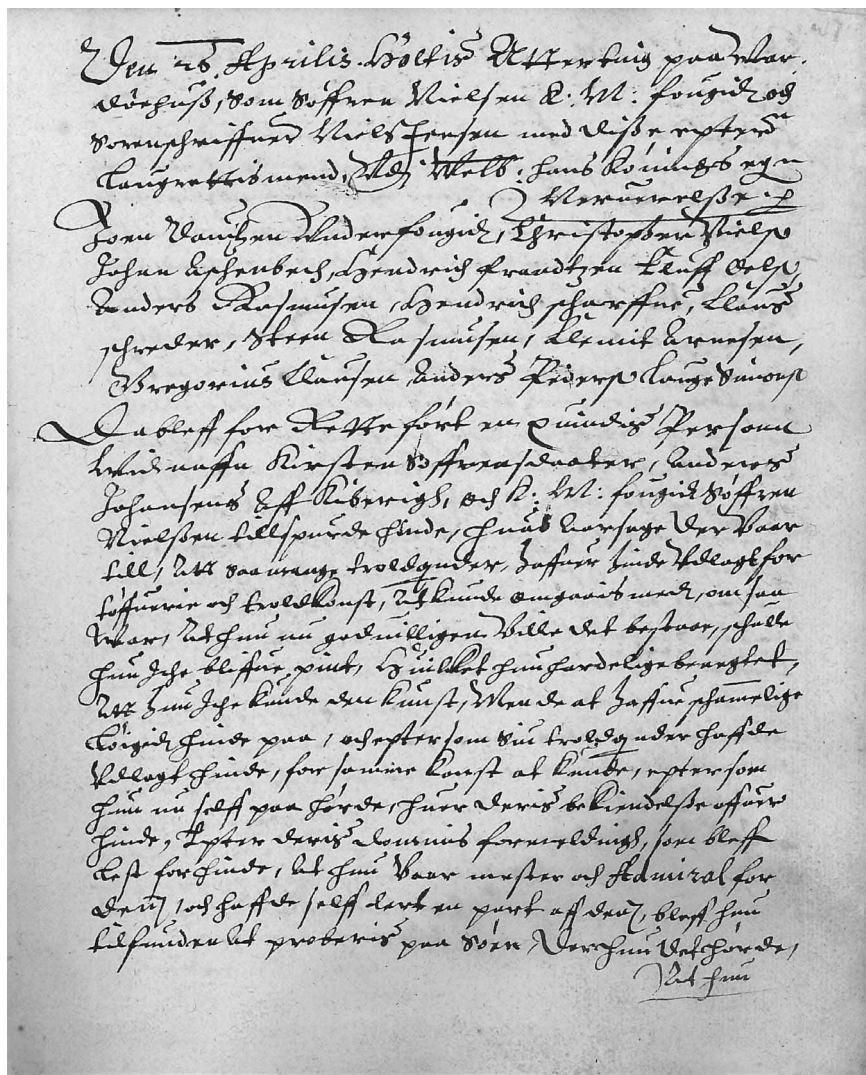 Den 26. Aprilis. Holtis Atterting paa War-
døehuß, som Søffren Nielsen K: M: fougidt och
Sorenschriffuer Niels Jensen med diße epter:ne
Laugrettis mend, Udj Welb: Hans Konings egn
Neruerelße
Joen Dauidtzen Underfougidt, Christopher Nielsß
Johan Aschenbech, Hendrich frandtzen Oluff Oelsß
Anders Rasmusen, Hendrich scharffue, Claus
schreder, Steen Rasmusen, Clemit Arnesen,
Gregorius Clausen Anders Pedersß Lauge Simonsß
Da bleff for Rette ført en quindis Person
Wid naffn Kirsten Søffrensdaater, Anders
Johansens Aff Kiberigh, och K: M: fougidt Søffren
Nielßen tillspurde hinde, huad Aarsage der Vaar
till, Att saa mange troldqunder, haffuer hinde Vdlagt for
tøffuerie och troldkonst, At kunde omgaais med, om saa
War, At hun nu godwilligen Ville det bestaae, schulle
hun Iche bliffue pint, Huilket hun hardelige benegtet,
Att hun Iche kunde den kunst, Men de at haffue schammelige
Løigidt hinde paa, och epter som Siu troldqunder haffde
Vdlagt hinde, for samme konst at kunde, epter som
hun nu selff paa hørde, huer deris bekiendelße offuer
hinde, Epter deris domms formeldingh, som bleff
lest for hinde, At hun Vaar mester och Admiral for
denn, och haffde selff lert en part aff denn, bleff hun
tilfunden At proberis paa Søen, Der hun det hørde,
At hun